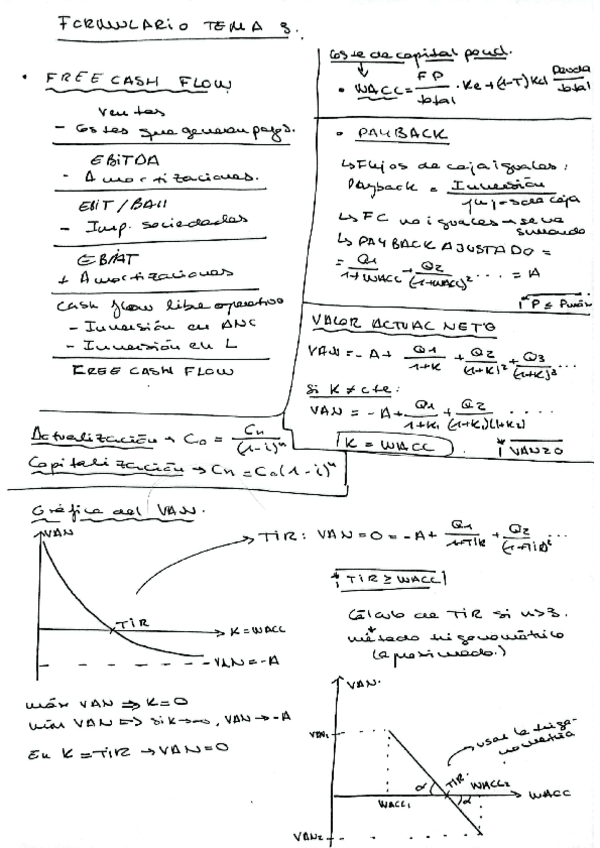 FORMULARIO TEMA 3.
• FREE CASH FLOW
Ventas
- Costes que generan pagos.
EBITDA
- Amortizaciones.
EBIT / BAII
- Imp. sociedades
EBIAT
+ Amortizaciones
Cash flow libre operativo
- Inversión en ANC
- Inversión en L
FREE CASH FLOW
Actualización → C₀ = Cn/(1-i)ⁿ
Capitalización → Cn = C₀(1-i)ⁿ
Coste de capital pond.
• WACC = FP/total · Ke + (1-T) Kd Deuda/total
• PAYBACK
↳ Flujos de caja iguales:
Payback = Inversión/flujos de caja
↳ FC no iguales → se va sumando
↳ PAYBACK AJUSTADO =
= Q1/(1+WACC) + Q2/(1+WACC)² ... = A
VALOR ACTUAL NETO
VAN = -A + Q1/(1+K) + Q2/(1+K)² + Q3/(1+K)³ ...
Si K ≠ cte:
VAN = -A + Q1/(1+K₁) + Q2/(1+K₁)(1+K₂) ....
K = WACC
Gráfica del VAN.
VAN
TIR
K = WACC
VAN = -A
TIR: VAN = 0 = -A + Q1/(1+TIR) + Q2/(1+TIR)² ...
TIR ≥ WACC
Cálculo de TIR si n>3.
método trigonométrico
(aproximado.)
máx VAN ⇒ K=0
mín VAN ⇒ si K→∞, VAN→-A
En K = TIR → VAN = 0
VAN.
VAN₁
usar la trigonometría
α
TIR
WACC₂
α
WACC
WACC₁
VAN₂